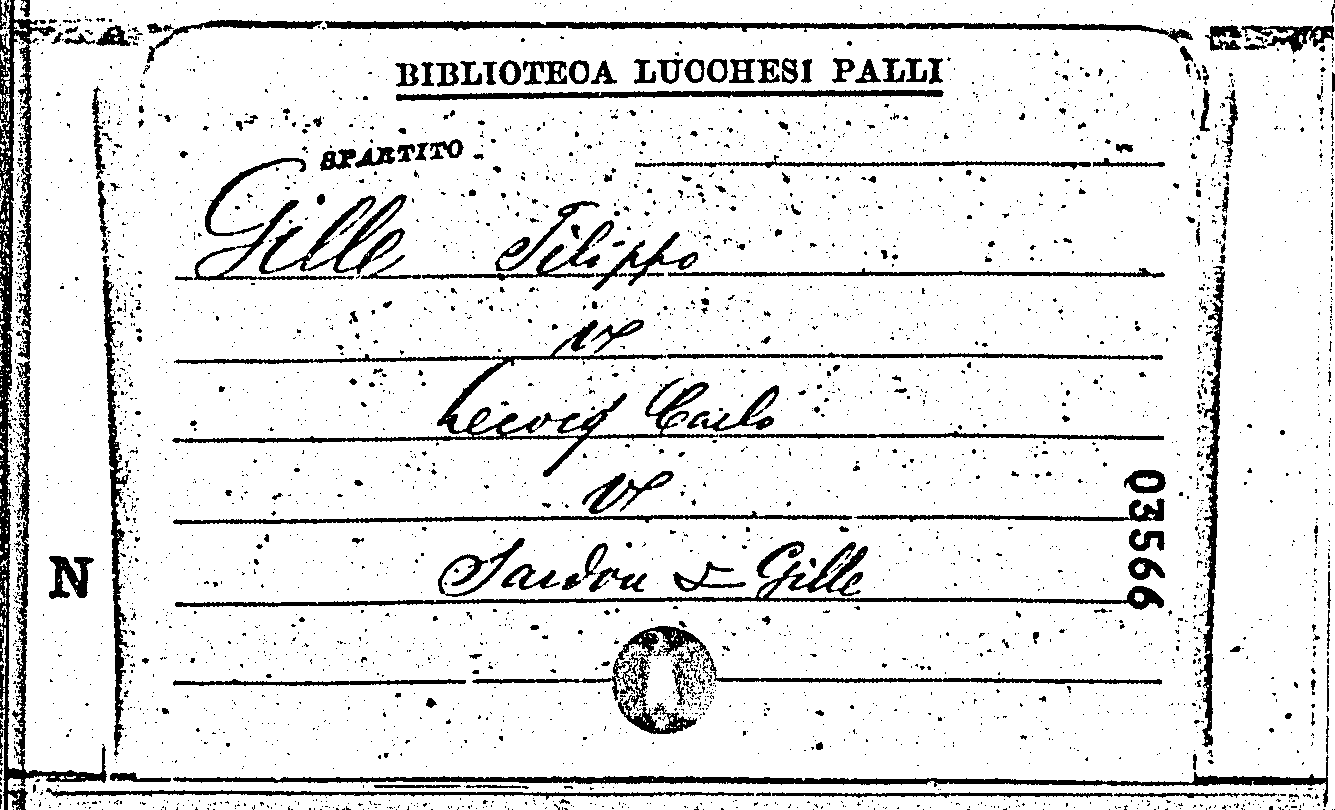 BIBLIOTECA LUCCHESI PALLI
SPARTITO
Gille Filippo
V
Lecocq Carlo
V
Sardou & Gille
N
03566